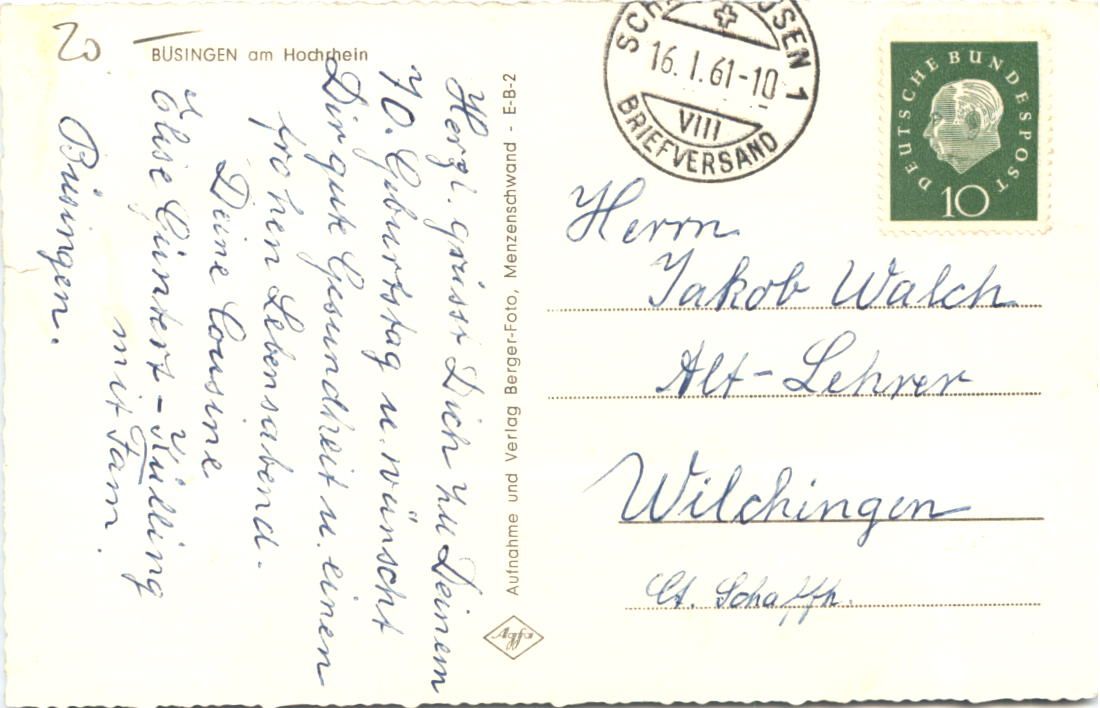 20
BÜSINGEN am Hochrhein
Herzl. grüsst Dich zu Deinem
70. Geburtstag u. wünscht
Dir gute Gesundheit u. einen
frohen Lebensabend.
Deine Cousine
Elise Güntert-Külling
mit Fam.
Büsingen.
Aufnahme und Verlag Berger-Foto, Menzenschwand - E-B-2
Agfa
16.1.61-10
VIII
BRIEFVERSAND
DEUTSCHE BUNDESPOST
10
Herrn
Jakob Walch
Alt-Lehrer
Wilchingen
Ct. Schaffh.